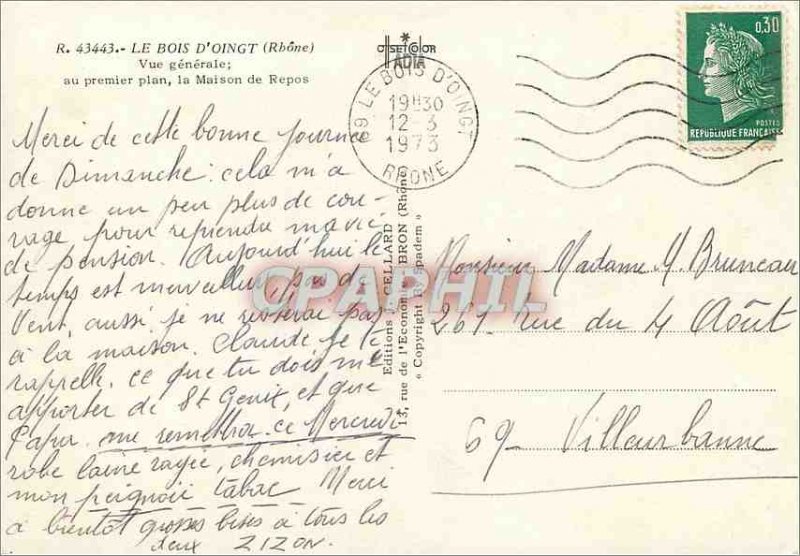 R. 43443.- LE BOIS D'OINGT (Rhône)
Vue générale;
au premier plan, la Maison de Repos
OFFSET COLOR
ADIA
69 LE BOIS D'OINGT
19H30
12-3
1973
RHONE
0,30
POSTES
REPUBLIQUE FRANCAISE
Merci de cette bonne journée
de Dimanche : cela m'a
donne un peu plus de cou-
rage pour reprendre ma vie
de pension. Aujourd'hui le
temps est merveilleux, pas de
Vent, aussi je ne resterai pas
à la maison. Claude je te
rappelle, ce que tu dois me
apporter de St Genix, et que
Papa me remettra ce Mercredi
robe laine rayée, chemisier et
mon peignoir tabac Merci
a bientôt grosses bises à tous les
deux ZIZON.
Editions J. CELLARD
13, rue de l'Economie, BRON (Rhône)
« Copyright By Spadem »
CPAPHIL
Monsieur Madame M. Bruneau
261 rue du 4 Août
69- Villeurbanne